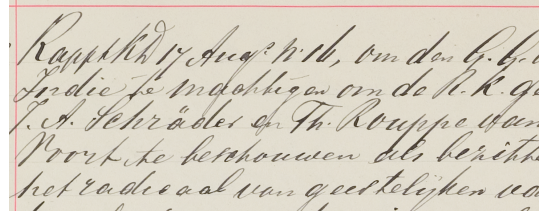 Rapport KD 17 Augs. N: 16, om den G. G.
Indie te magtigen om de R. K. ge
J. A. Schräder en Th. Rouppe van
Voort te beschouwen als bezitte
het radicaal van geestelijken vo